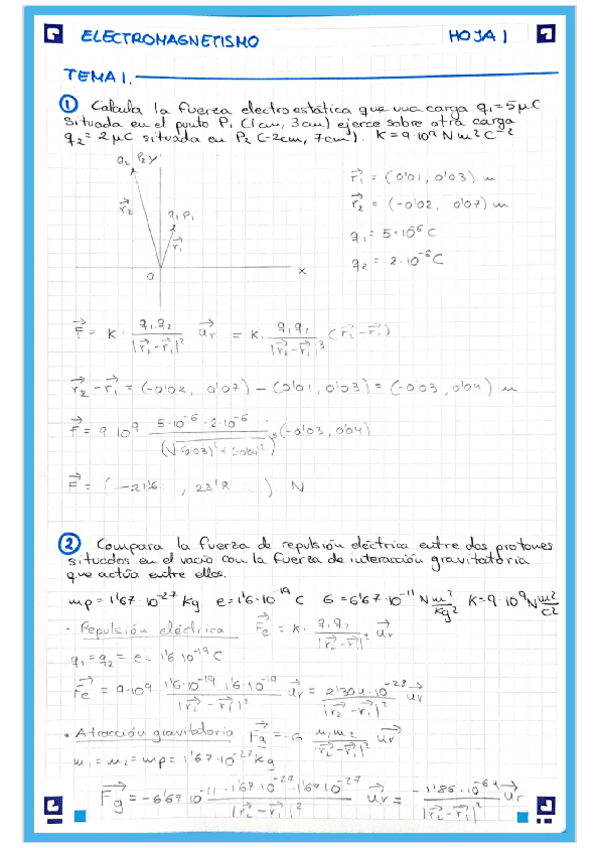 ELECTROMAGNETISMO HOJA 1
TEMA 1.
① Calcula la fuerza electroestática que una carga q₁=5μC
situada en el punto P₁ (1cm, 3cm) ejerce sobre otra carga
q₂= 2μC situada en P₂ (-2cm, 7cm). K=9·10⁹ N m² C⁻²
q₂ P₂ Y
r₂
q₁ P₁
r₁
O
X
r₁ = (0'01, 0'03) m
r₂ = (-0'02, 0'07) m
q₁= 5·10⁻⁶ C
q₂ = 2·10⁻⁶ C
F = K · q₁·q₂ / |r₂-r₁|² ur = K· q₁q₂ / |r₂-r₁|³ (r₂-r₁)
r₂-r₁ = (-0'02, 0'07) - (0'01, 0'03) = (-0'03, 0'04) m
F = 9·10⁹ 5·10⁻⁶·2·10⁻⁶ / (√(-0'03)²+(0'04)²)³ (-0'03, 0'04)
F = (-21'6 , 28'8 ) N
② Compara la fuerza de repulsión eléctrica entre dos protones
situados en el vacío con la fuerza de interacción gravitatoria
que actúa entre ellos.
mp = 1'67·10⁻²⁷ Kg e=1'6·10⁻¹⁹ C G=6'67·10⁻¹¹ N m²/kg² K=9·10⁹ N m²/C²
· Repulsión eléctrica Fe = K· q₁q₂ / |r₂-r₁|² ur
q₁=q₂ = e= 1'6·10⁻¹⁹ C
Fe = 9·10⁹ 1'6·10⁻¹⁹·1'6·10⁻¹⁹ / |r₂-r₁|² ur = 2'304·10⁻²⁸ / |r₂-r₁|² ur
· Atracción gravitatoria Fg = -G m₁m₂ / |r₂-r₁|² ur
m₁=m₂=mp= 1'67·10⁻²⁷ kg
Fg = -6'67·10⁻¹¹·1'67·10⁻²⁷·1'67·10⁻²⁷ / |r₂-r₁|² ur = -1'86·10⁻⁶⁴ / |r₂-r₁|² ur